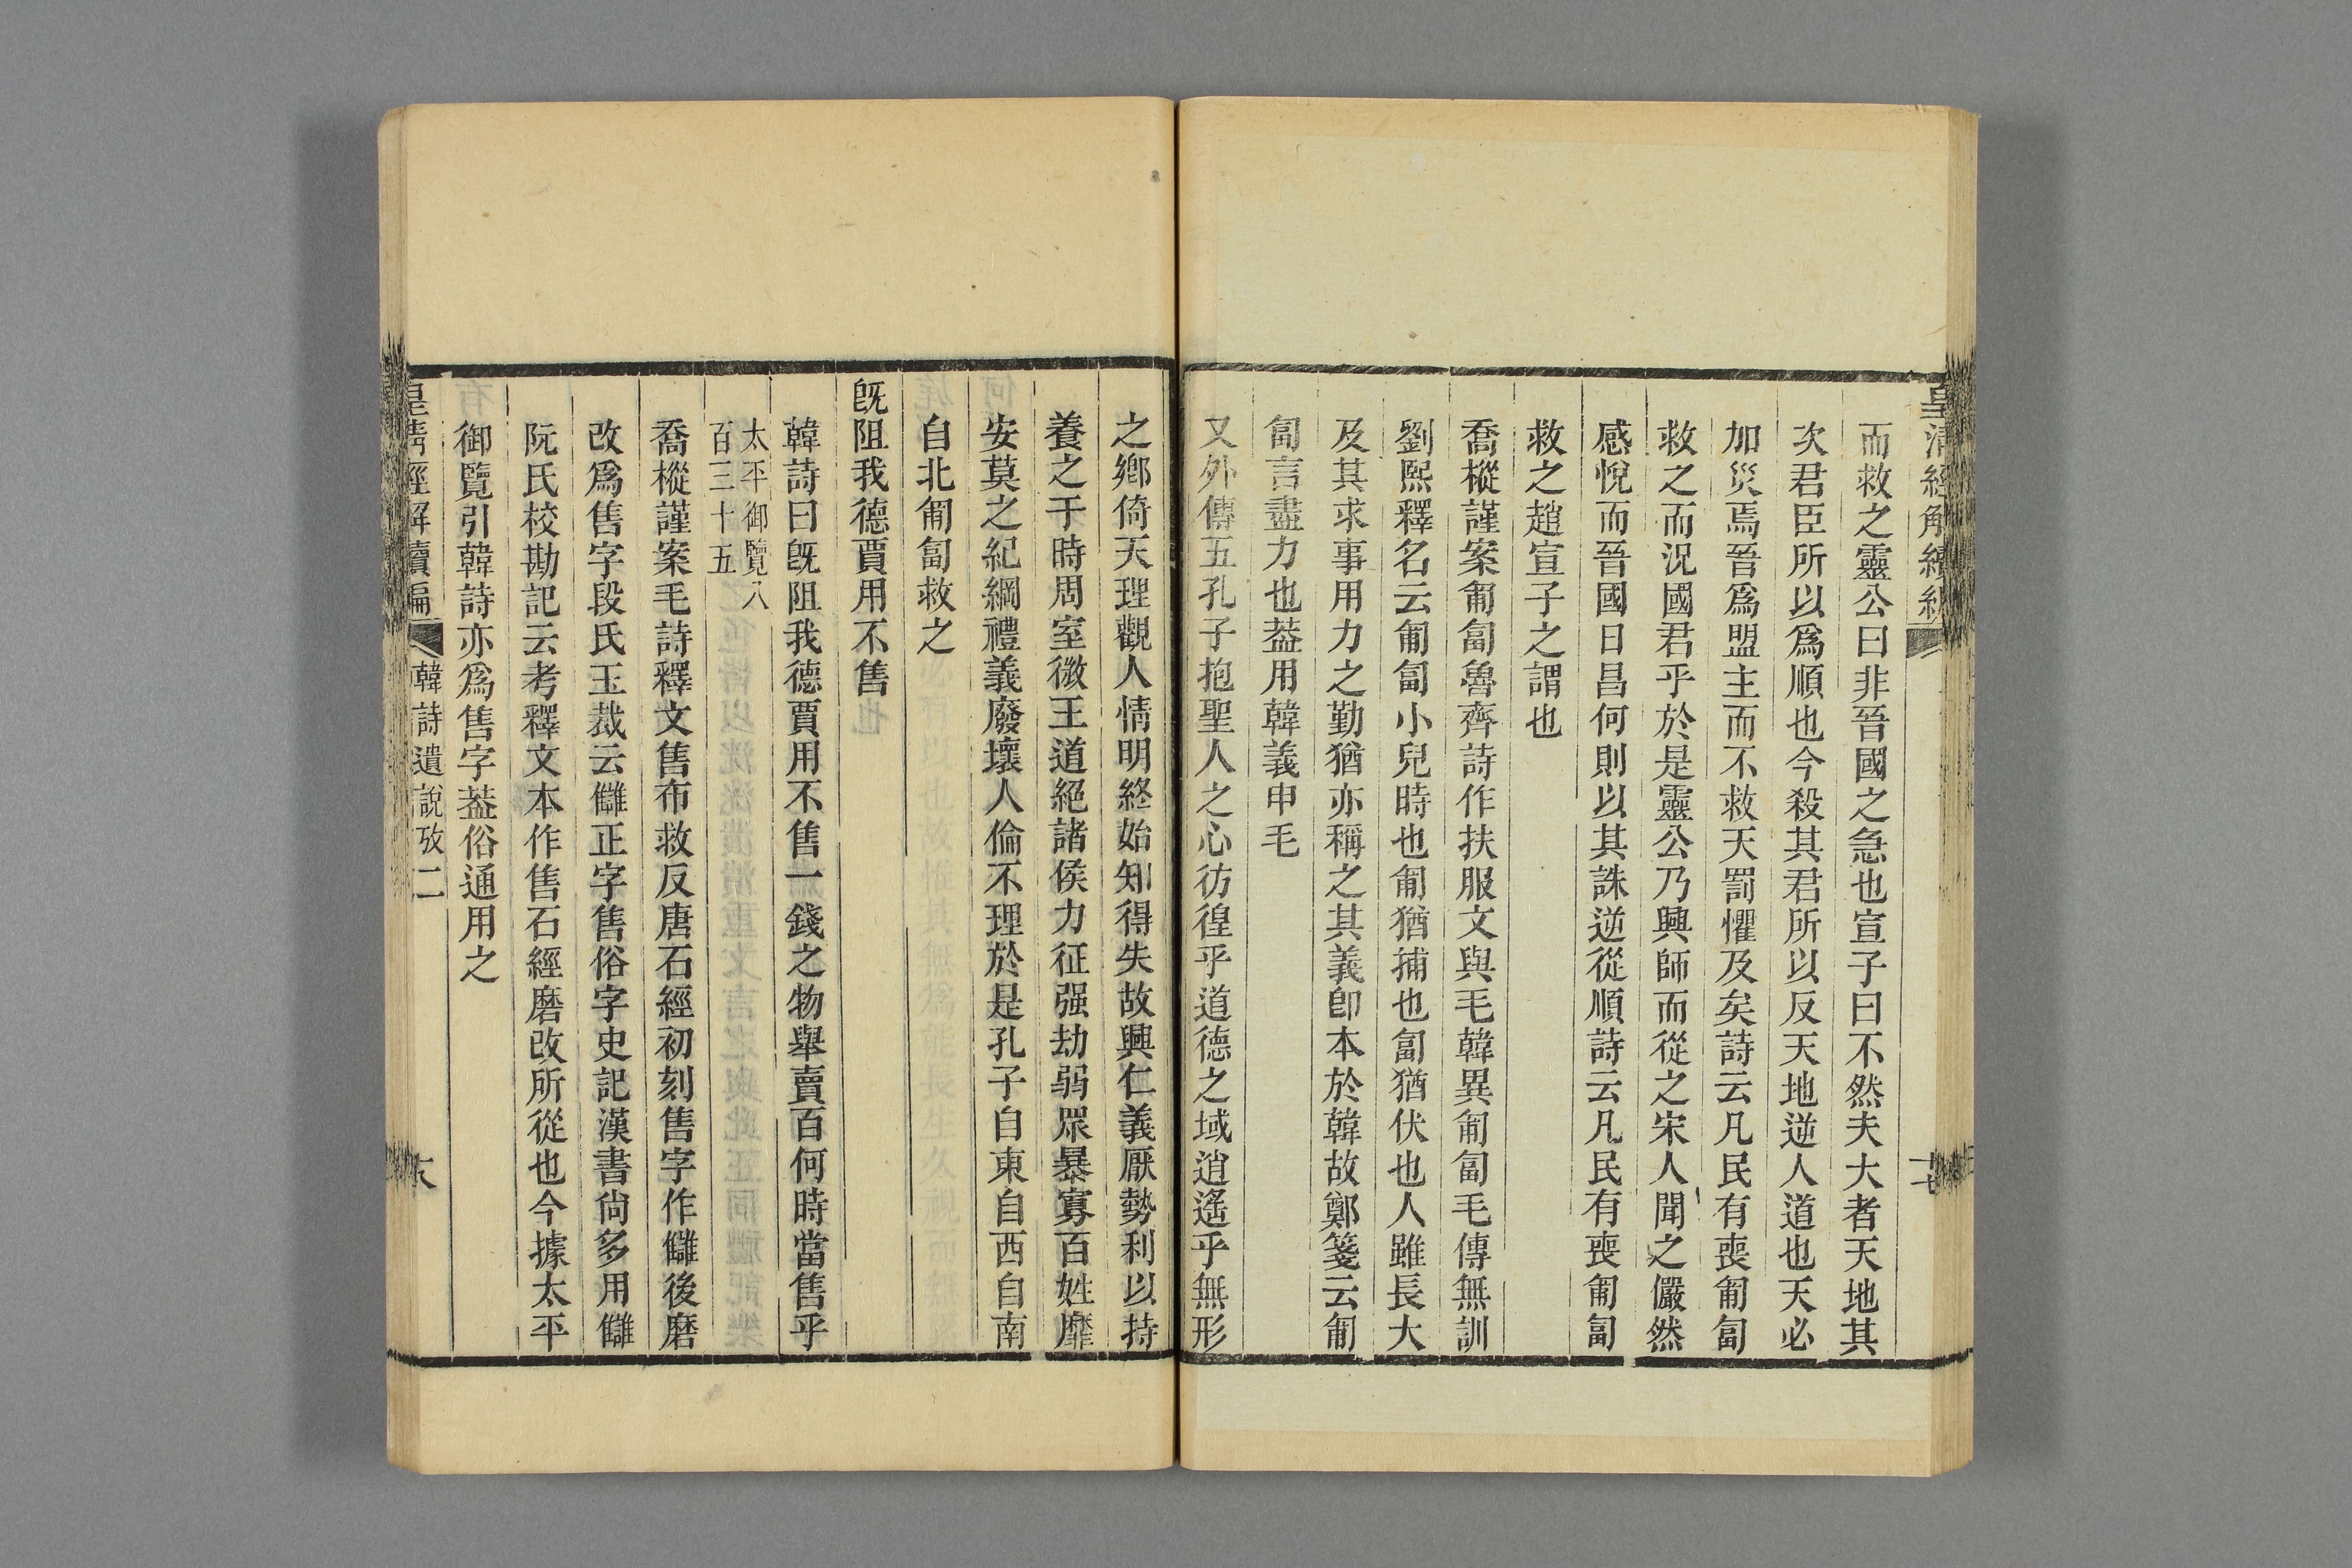 皇清經解續編
十七
而救之靈公曰非晉國之急也宣子曰不然夫大者天地其
次君臣所以爲順也今殺其君所以反天地逆人道也天必
加災焉晉爲盟主而不救天罰懼及矣詩云凡民有喪匍匐
救之而況國君乎於是靈公乃興師而從之宋人聞之儼然
感悅而晉國日昌何則以其誅逆從順詩云凡民有喪匍匐
救之趙宣子之謂也
喬樅謹案匍匐魯齊詩作扶服文與毛韓異匍匐毛傳無訓
劉熙釋名云匍匐小兒時也匍猶捕也匐猶伏也人雖長大
及其求事用力之勤猶亦稱之其義卽本於韓故鄭箋云匍
匐言盡力也葢用韓義申毛
又外傳五孔子抱聖人之心彷徨乎道德之域逍遙乎無形
之鄉倚天理觀人情明終始知得失故興仁義厭勢利以持
養之于時周室微王道絕諸侯力征强劫弱眾暴寡百姓靡
安莫之紀綱禮義廢壞人倫不理於是孔子自東自西自南
自北匍匐救之
旣阻我德賈用不售
韓詩曰旣阻我德賈用不售一錢之物舉賣百何時當售乎
太平御覽八
百三十五
喬樅謹案毛詩釋文售布救反唐石經初刻售字作讎後磨
改爲售字段氏玉裁云讎正字售俗字史記漢書尙多用讎
阮氏校勘記云考釋文本作售石經磨改所從也今據太平
御覽引韓詩亦爲售字葢俗通用之
皇清經解續編
韓詩遺說攷二